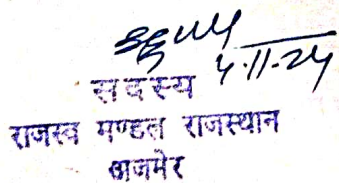 4.11.24
सदस्य
राजस्व मण्डल राजस्थान
अजमेर